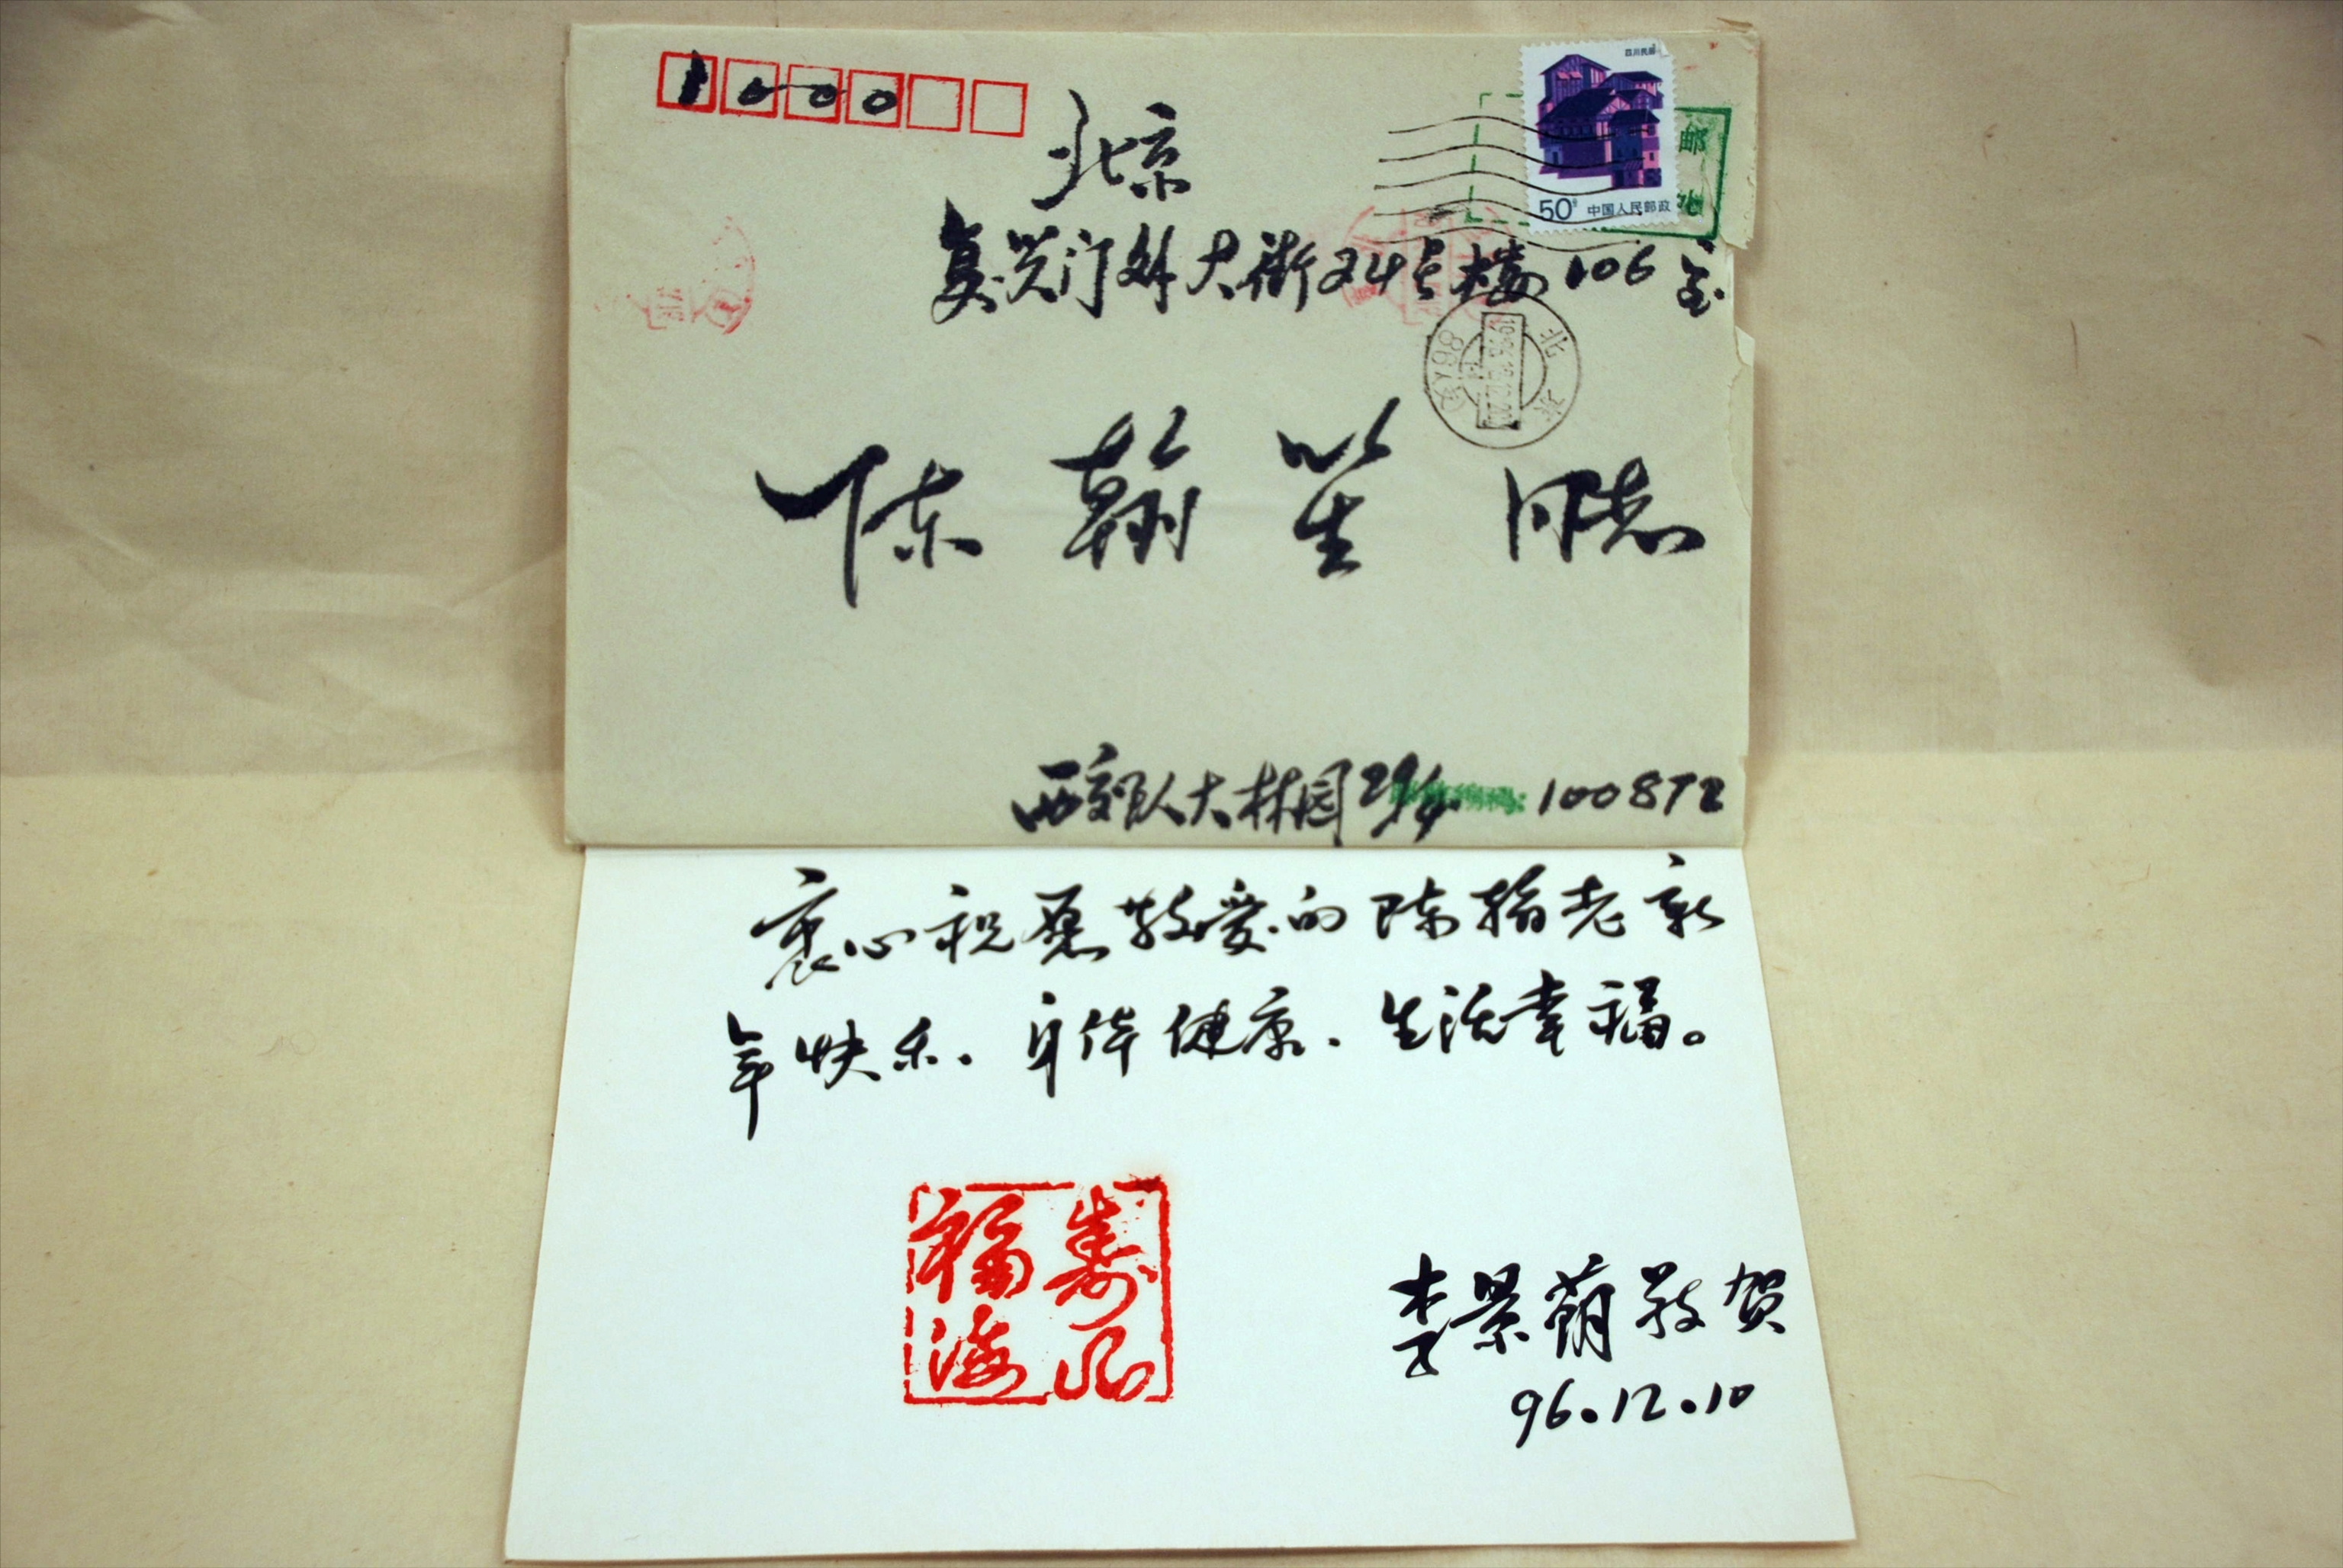 1000
四川民居
北京
50分 中国人民邮政
复兴门外大街24号楼106室
北京
陈翰笙 同志
西郊人大林园 100872
衷心祝愿敬爱的陈翰老新
年快乐、身体健康、生活幸福。
福 寿
海
李景萌敬贺
96.12.10